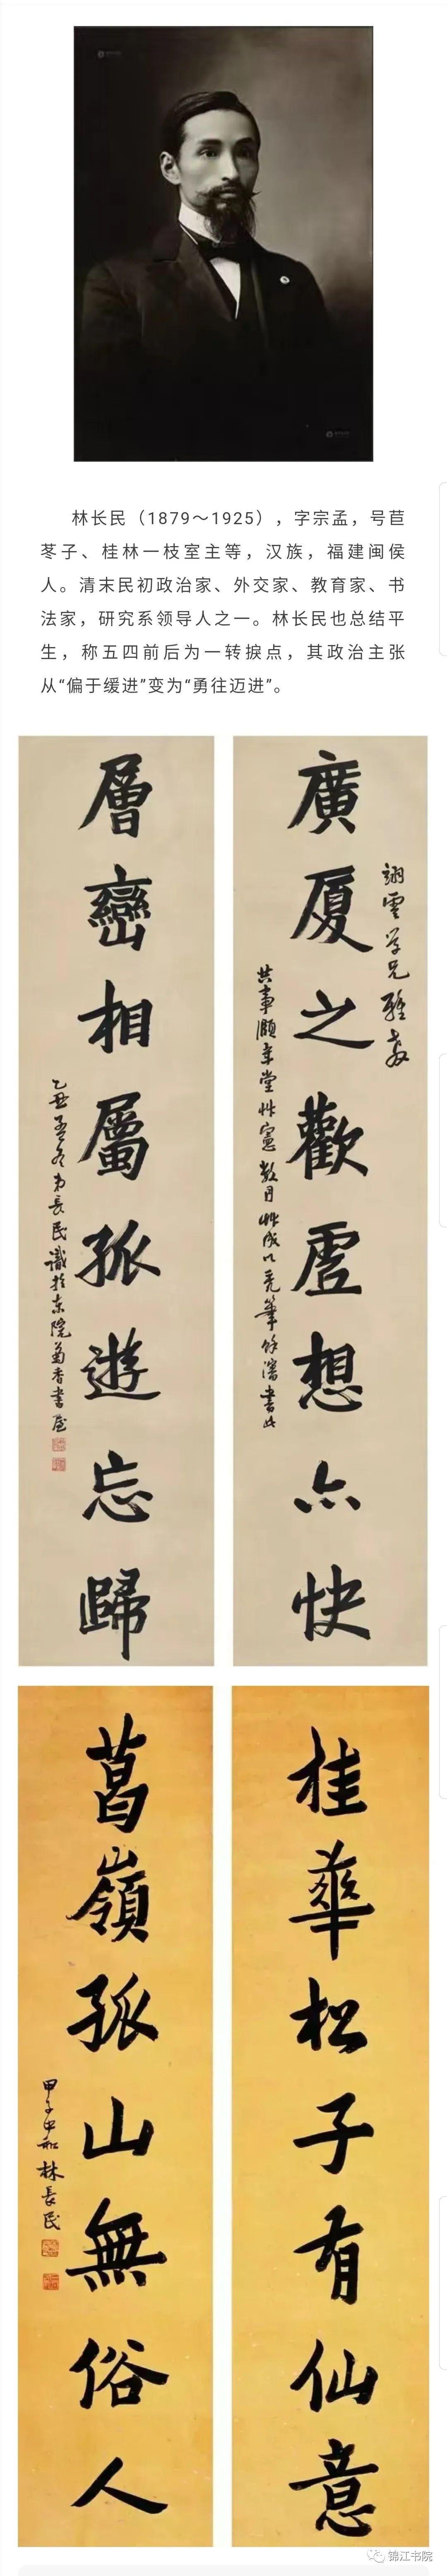 林长民（1879～1925），字宗孟，号苣
苳子、桂林一枝室主等，汉族，福建闽侯
人。清末民初政治家、外交家、教育家、书
法家，研究系领导人之一。林长民也总结平
生，称五四前后为一转捩点，其政治主张
从“偏于缓进”变为“勇往迈进”。
廣厦之歡虗想亦快
翊雲学兄雅教
層巒相屬孤遊忘歸
乙丑孟冬弟長民識於东院菊香書屋
桂華松子有仙意
葛嶺孤山無俗人
甲子中秋林長民
锦江书院